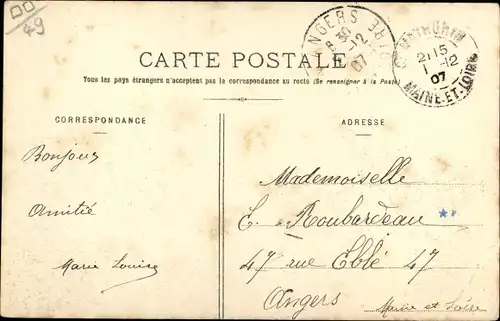 49
ANGERS GARE
8 30
1-12
07
ST MATHURIN
21 15
1 -12
07
MAINE-ET-LOIRE
CARTE POSTALE
Tous les pays étrangers n'acceptent pas la correspondance au recto (Se renseigner à la Poste)
CORRESPONDANCE
ADRESSE
Bonjour
Amitié
Marie Louise
Mademoiselle
E. Roubardeau
47 rue Eblé 47
Angers
Maine et Loire